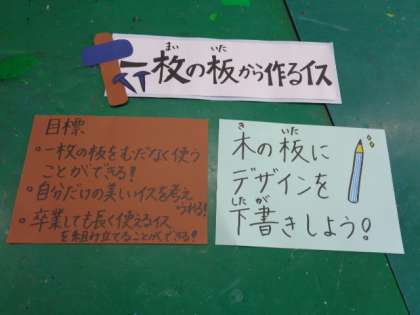 一枚の板から作るイス
まい いた
目標
・一枚の板をむだなく使う
ことができる！
・自分だけの美しいイスを考え
られる！
・卒業しても長く使えるイス
を組み立てることができる！
木の板に
き いた
デザインを
下書きしよう！
した が